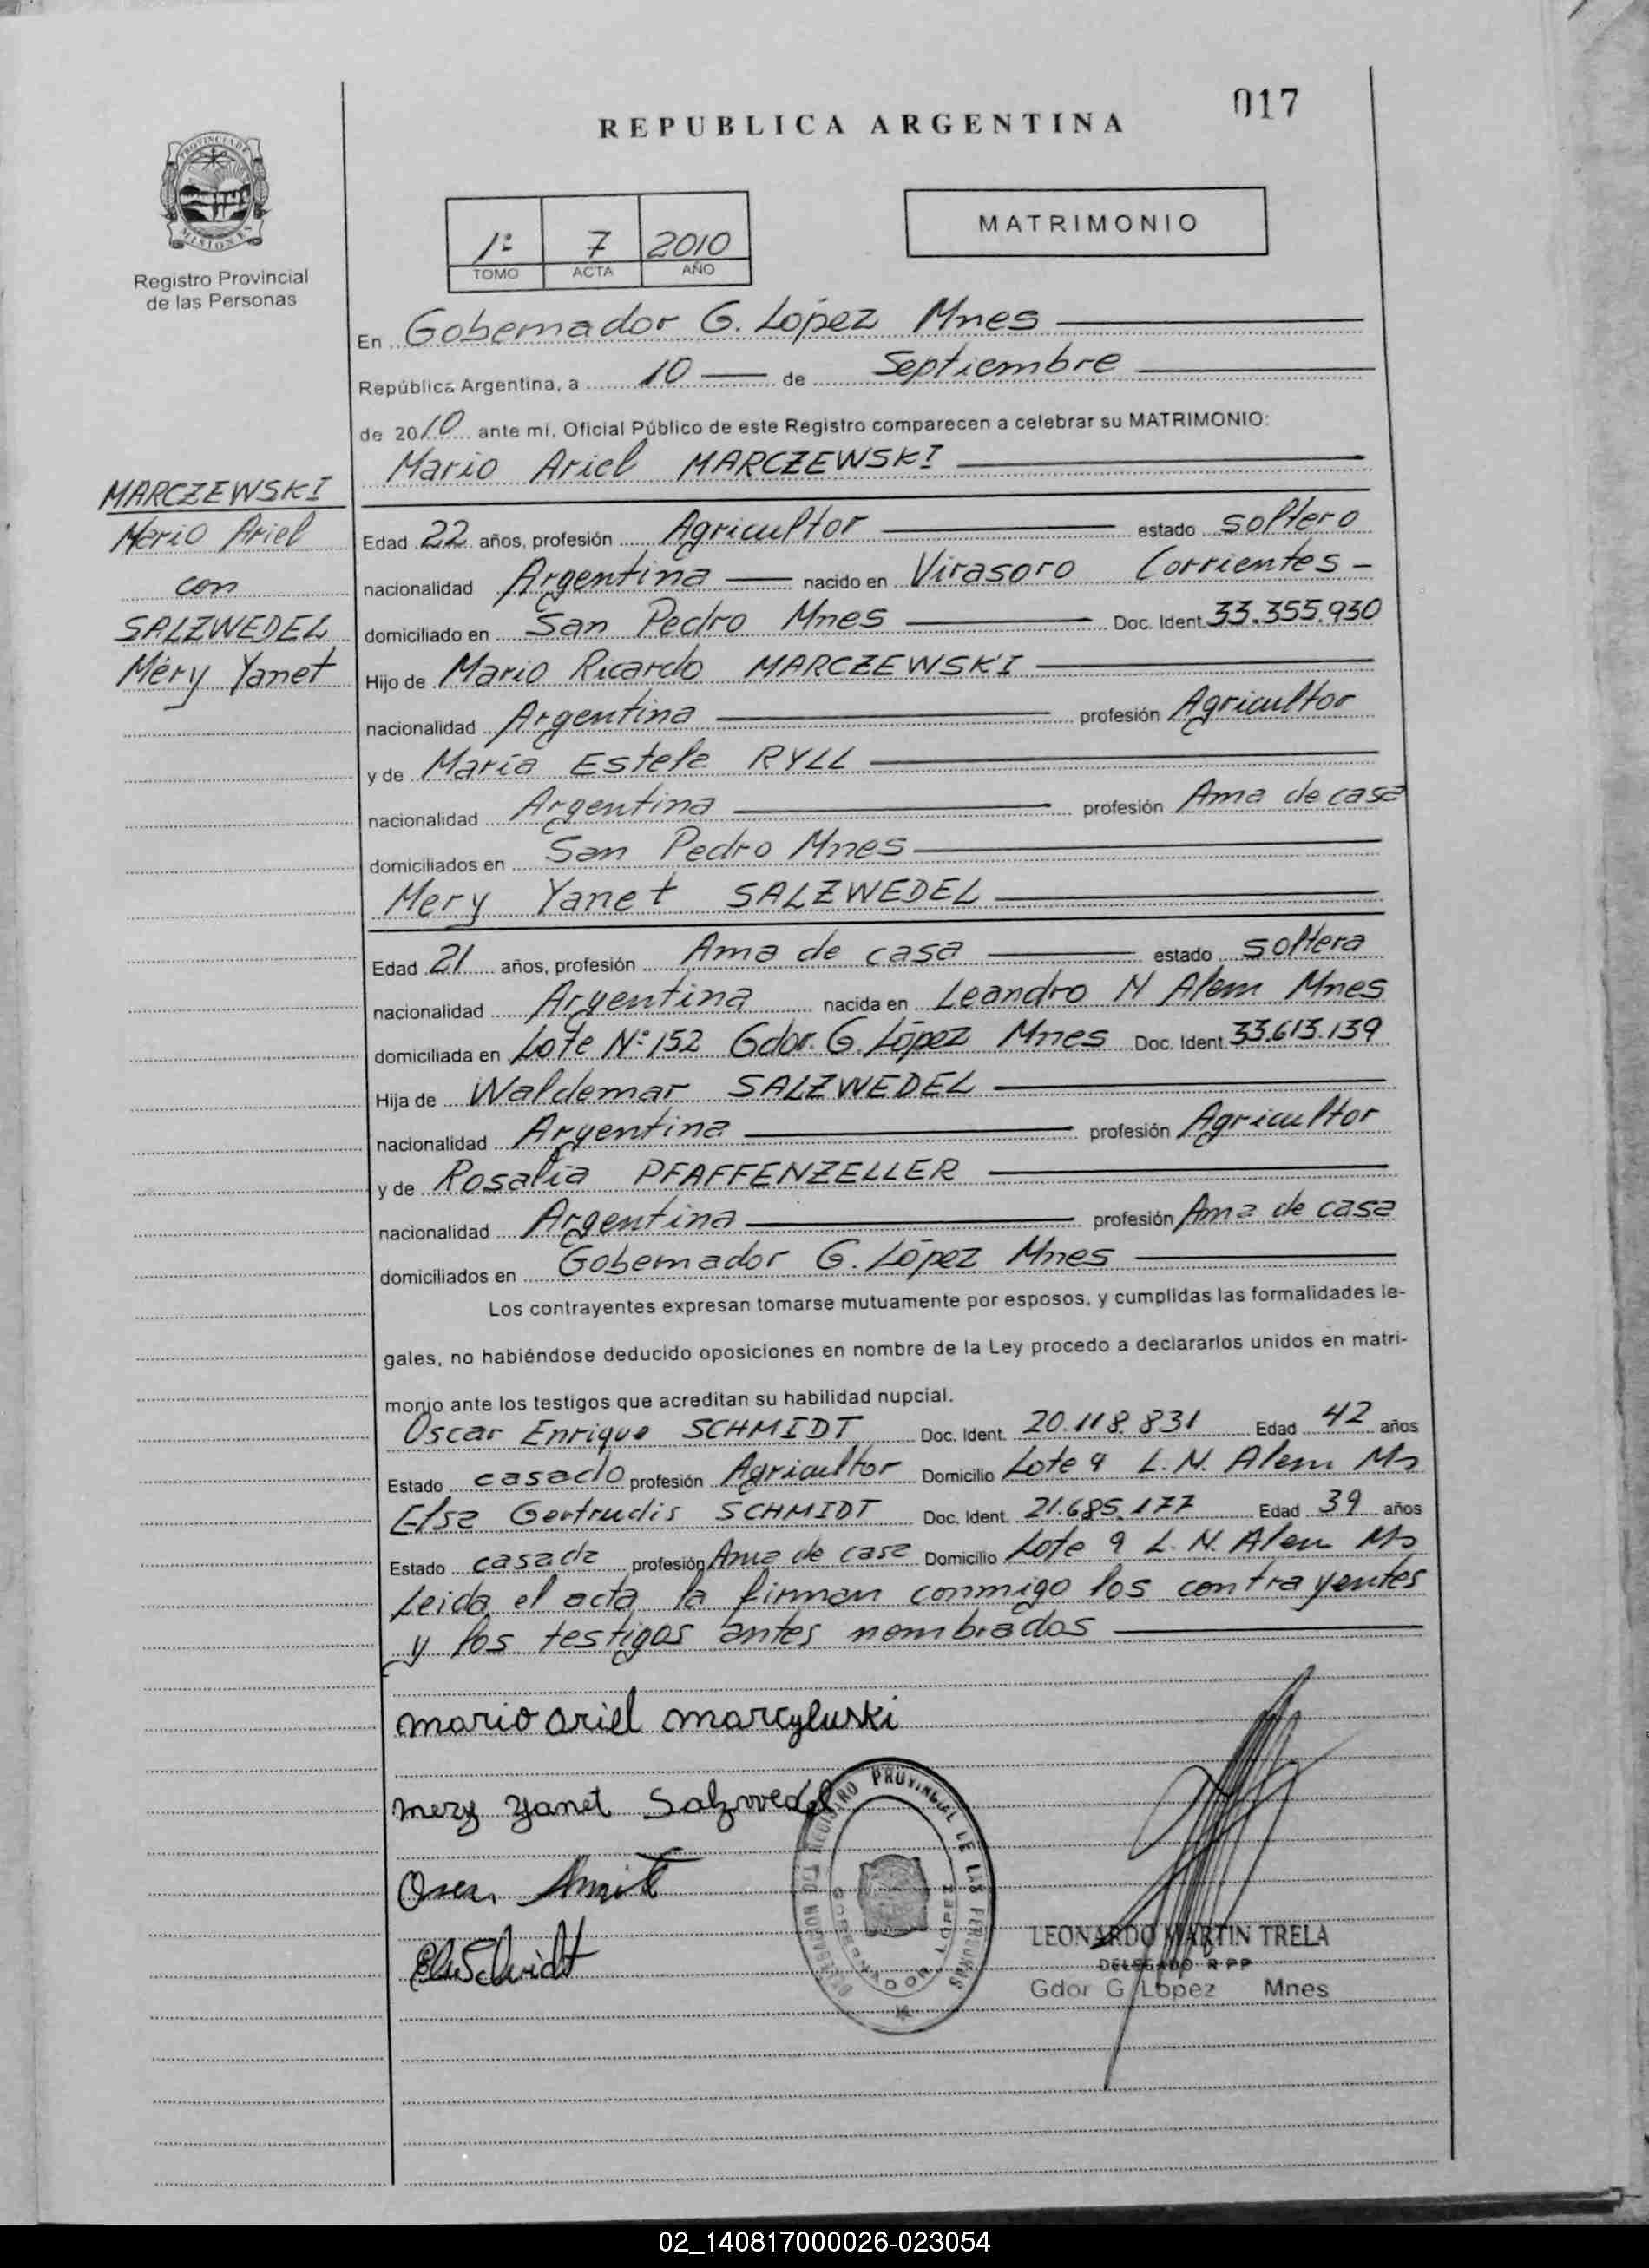 017
REPUBLICA ARGENTINA
PROVINCIA DE
MISIONES
Registro Provincial
de las Personas
1º 7 2010
TOMO ACTA AÑO
MATRIMONIO
En Gobernador G. López Mnes
República Argentina, a 10 de Septiembre
de 2010 ante mí, Oficial Público de este Registro comparecen a celebrar su MATRIMONIO:
Mario Ariel MARCZEWSKI
MARCZEWSKI
Mario Ariel
con
SALZWEDEL
Mery Yanet
Edad 22 años, profesión Agricultor estado soltero
nacionalidad Argentina nacido en Virasoro Corrientes
domiciliado en San Pedro Mnes Doc. Ident. 33.355.930
Hijo de Mario Ricardo MARCZEWSKI
nacionalidad Argentina profesión Agricultor
y de María Estela RYLL
nacionalidad Argentina profesión Ama de casa
domiciliados en San Pedro Mnes
Mery Yanet SALZWEDEL
Edad 21 años, profesión Ama de casa estado soltera
nacionalidad Argentina nacida en Leandro N Alem Mnes
domiciliada en Lote Nº 152 Gdor. G. López Mnes Doc. Ident. 33.613.139
Hija de Waldemar SALZWEDEL
nacionalidad Argentina profesión Agricultor
y de Rosalía PFAFFENZELLER
nacionalidad Argentina profesión Ama de casa
domiciliados en Gobernador G. López Mnes
Los contrayentes expresan tomarse mutuamente por esposos, y cumplidas las formalidades le-
gales, no habiéndose deducido oposiciones en nombre de la Ley procedo a declararlos unidos en matri-
monio ante los testigos que acreditan su habilidad nupcial.
Oscar Enrique SCHMIDT Doc. Ident. 20.118.831 Edad 42 años
Estado casado profesión Agricultor Domicilio Lote 9 L.N. Alem Ms
Elsa Gertrudis SCHMIDT Doc. Ident. 21.685.177 Edad 39 años
Estado casada profesión Ama de casa Domicilio Lote 9 L.N. Alem Ms
Leida el acta la firman conmigo los contrayentes
y los testigos antes nombrados
mario ariel
mery yanet Salzwedel
REGISTRO PROVINCIAL DE LAS PERSONAS
GOBERNADOR LOPEZ
LEONARDO MARTIN TRELA
DELEGADO R P P
Gdor G López Mnes
02_140817000026-023054